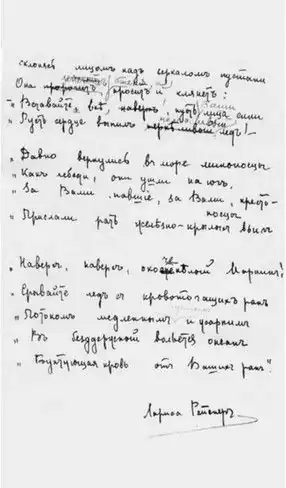 склоняясь лицомъ надъ зеркаломъ пустыни
Она проситъ и клянетъ:
„ Вставайте, всѣ, пусть лица сини
„ Пусть сердце выпилъ ледъ! —
„ Давно вернулись въ море миноносцы
„ Какъ лебеди, они ушли на югъ,
„ За Вами павшіе, за Вами, кресто-
носцы
„ Прислали рать желѣзно-крылыхъ вьюгъ
„ Наверхъ, наверхъ, Морякъ!
„ Срывайте ледъ съ кровоточащихъ ранъ
„ Потокомъ медленнымъ и ударнымъ
„ Въ вольется океанъ
„ Бунтующая кровь отъ Вашихъ ранъ"
Лариса Рейснеръ